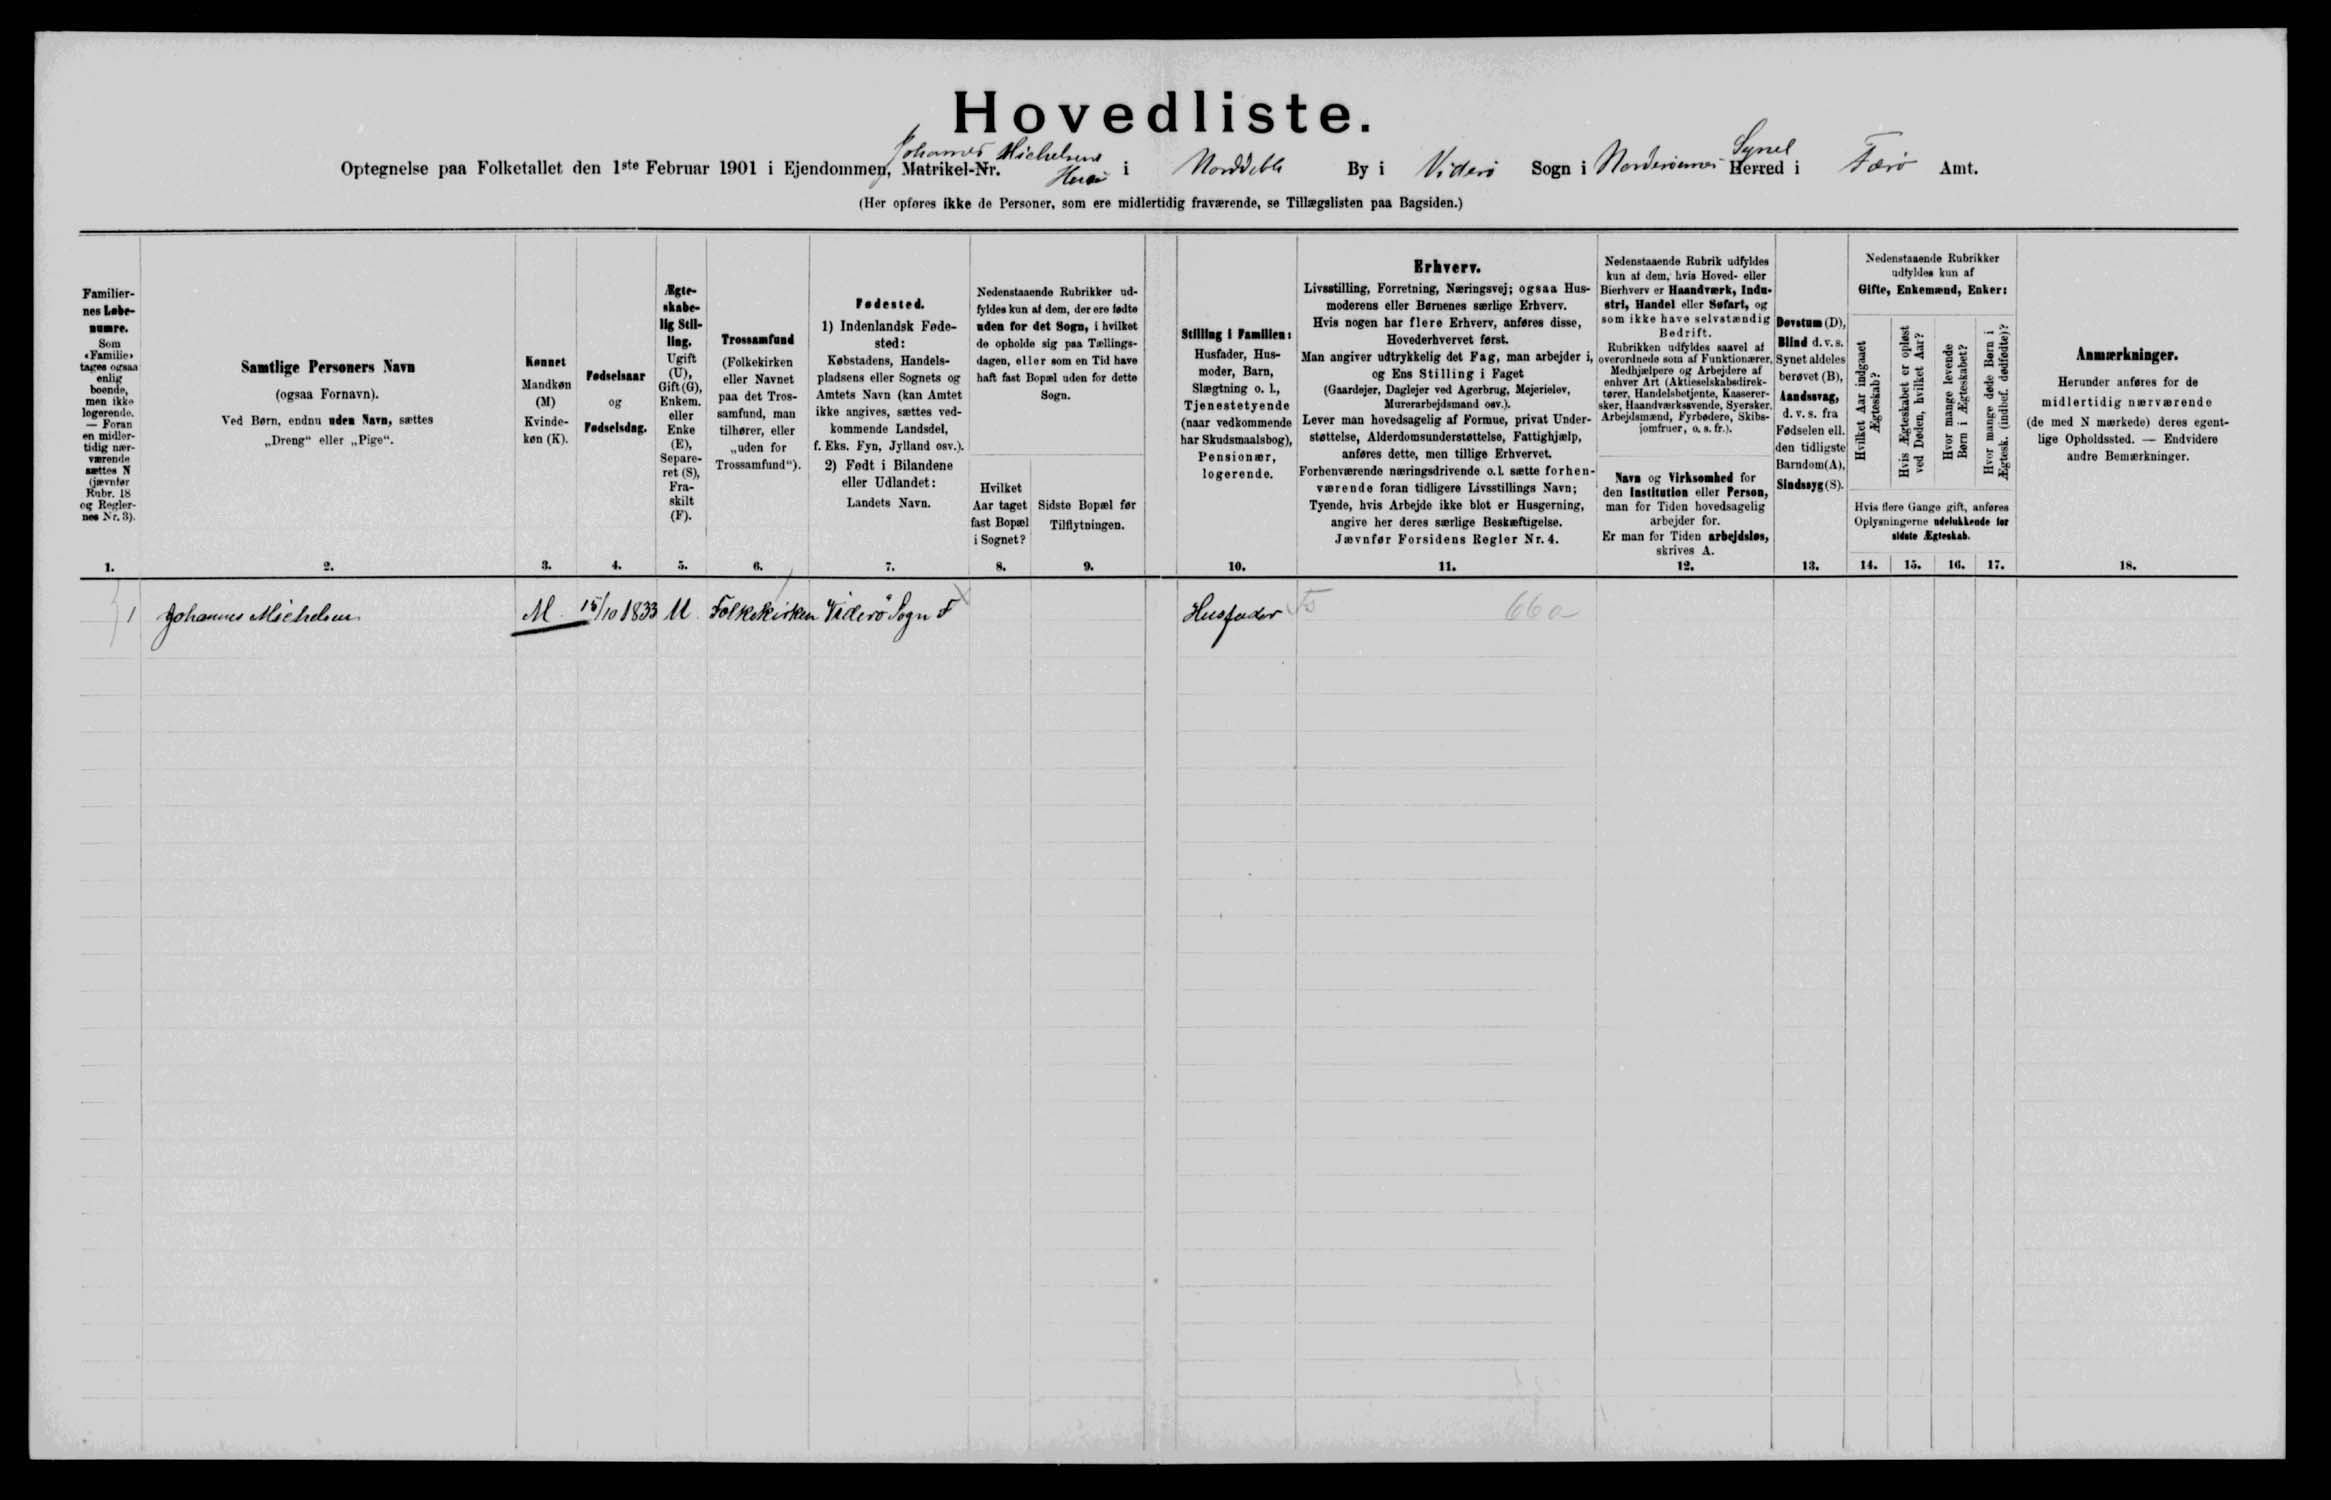 Hovedliste.
Johannes Michelsens Syssel
Optegnelse paa Folketallet den 1ste Februar 1901 i Ejendommen, Matrikel-Nr. Huus i Norddeble By i Viderø Sogn i Norderøernes Herred i Færø Amt.
(Her opføres ikke de Personer, som ere midlertidig fraværende, se Tillægslisten paa Bagsiden.)
Familier-
nes Løbe-
numre.
Som
«Familie»
tages ogsaa
enlig
boende,
men ikke
logerende.
— Foran
en midler-
tidig nær-
værende
sættes N
(jævnfør
Rubr. 18
og Regler-
nes Nr. 3).
1.
Samtlige Personers Navn
(ogsaa Fornavn).
Ved Børn, endnu uden Navn, sættes
„Dreng“ eller „Pige“.
2.
Kønnet
Mandkøn
(M)
Kvinde-
køn (K).
3.
Fødselsaar
og
Fødselsdag.
4.
Ægte-
skabe-
lig Stil-
ling.
Ugift
(U),
Gift (G),
Enkem.
eller
Enke
(E),
Separe-
ret (S),
Fra-
skilt
(F).
5.
Trossamfund
(Folkekirken
eller Navnet
paa det Tros-
samfund, man
tilhører, eller
„uden for
Trossamfund“).
6.
Fødested.
1) Indenlandsk Føde-
sted:
Købstadens, Handels-
pladsens eller Sognets og
Amtets Navn (kan Amtet
ikke angives, sættes ved-
kommende Landsdel,
f. Eks. Fyn, Jylland osv.).
2) Født i Bilandene
eller Udlandet:
Landets Navn.
7.
Nedenstaaende Rubrikker ud-
fyldes kun af dem, der ere fødte
uden for det Sogn, i hvilket
de opholde sig paa Tællings-
dagen, eller som en Tid have
haft fast Bopæl uden for dette
Sogn.
Hvilket
Aar taget
fast Bopæl
i Sognet?
8.
Sidste Bopæl før
Tilflytningen.
9.
Stilling i Familien:
Husfader, Hus-
moder, Barn,
Slægtning o. l.,
Tjenestetyende
(naar vedkommende
har Skudsmaalsbog),
Pensionær,
logerende.
10.
Erhverv.
Livsstilling, Forretning, Næringsvej; ogsaa Hus-
moderens eller Børnenes særlige Erhverv.
Hvis nogen har flere Erhverv, anføres disse,
Hovederhvervet først.
Man angiver udtrykkelig det Fag, man arbejder i,
og Ens Stilling i Faget
(Gaardejer, Daglejer ved Agerbrug, Mejerielev,
Murerarbejdsmand osv.).
Lever man hovedsagelig af Formue, privat Under-
støttelse, Alderdomsunderstøttelse, Fattighjælp,
anføres dette, men tillige Erhvervet.
Forhenværende næringsdrivende o.l. sætte forhen-
værende foran tidligere Livsstillings Navn;
Tyende, hvis Arbejde ikke blot er Husgerning,
angive her deres særlige Beskæftigelse.
Jævnfør Forsidens Regler Nr. 4.
11.
Nedenstaaende Rubrik udfyldes
kun af dem, hvis Hoved- eller
Bierhverv er Haandværk, Indu-
stri, Handel eller Søfart, og
som ikke have selvstændig
Bedrift.
Rubrikken udfyldes saavel af
overordnede som af Funktionærer,
Medhjælpere og Arbejdere af
enhver Art (Aktieselskabsdirek-
tører, Handelsbetjente, Kasserer-
sker, Haandværkssvende, Syersker,
Arbejdsmænd, Fyrbødere, Skibs-
jomfruer, o. s. fr.).
Navn og Virksomhed for
den Institution eller Person,
man for Tiden hovedsagelig
arbejder for.
Er man for Tiden arbejdsløs,
skrives A.
12.
Døvstum (D),
Blind d. v. s.
Synet aldeles
berøvet (B),
Aandssvag,
d. v. s. fra
Fødselen ell.
den tidligste
Barndom (A),
Sindssyg (S).
13.
Nedenstaaende Rubrikker
udfyldes kun af
Gifte, Enkemænd, Enker:
Hvilket Aar indgaaet
Ægteskab?
Hvis Ægteskabet er opløst
ved Døden, hvilket Aar?
Hvor mange levende
Børn i Ægteskabet?
Hvor mange døde Børn i
Ægtesk. (indbef. dødfødte)?
Hvis flere Gange gift, anføres
Oplysningerne udelukkende for
sidste Ægteskab.
14. 15. 16. 17.
Anmærkninger.
Herunder anføres for de
midlertidig nærværende
(de med N mærkede) deres egent-
lige Opholdssted. — Endvidere
andre Bemærkninger.
18.
1 Johannes Michelsen M 15/10 1833 U Folkekirken Viderø Sogn F Husfader 66a